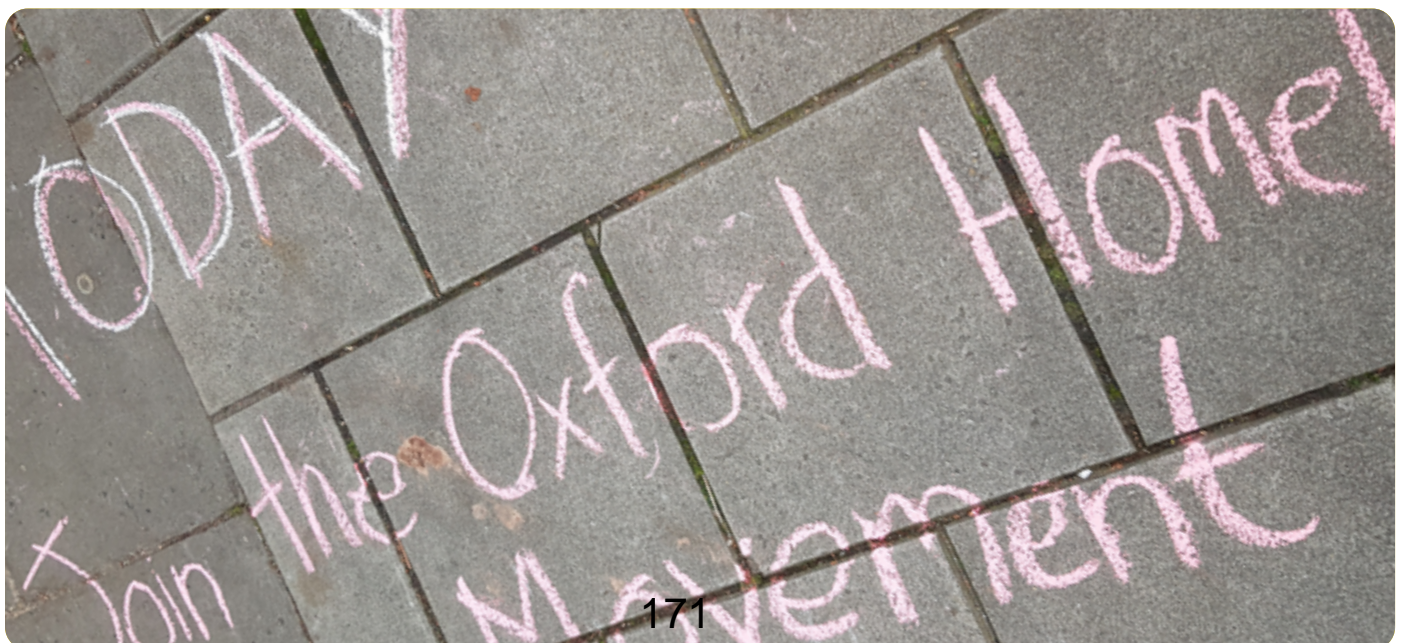 TODAY
Join the Oxford Homel
Movement
171